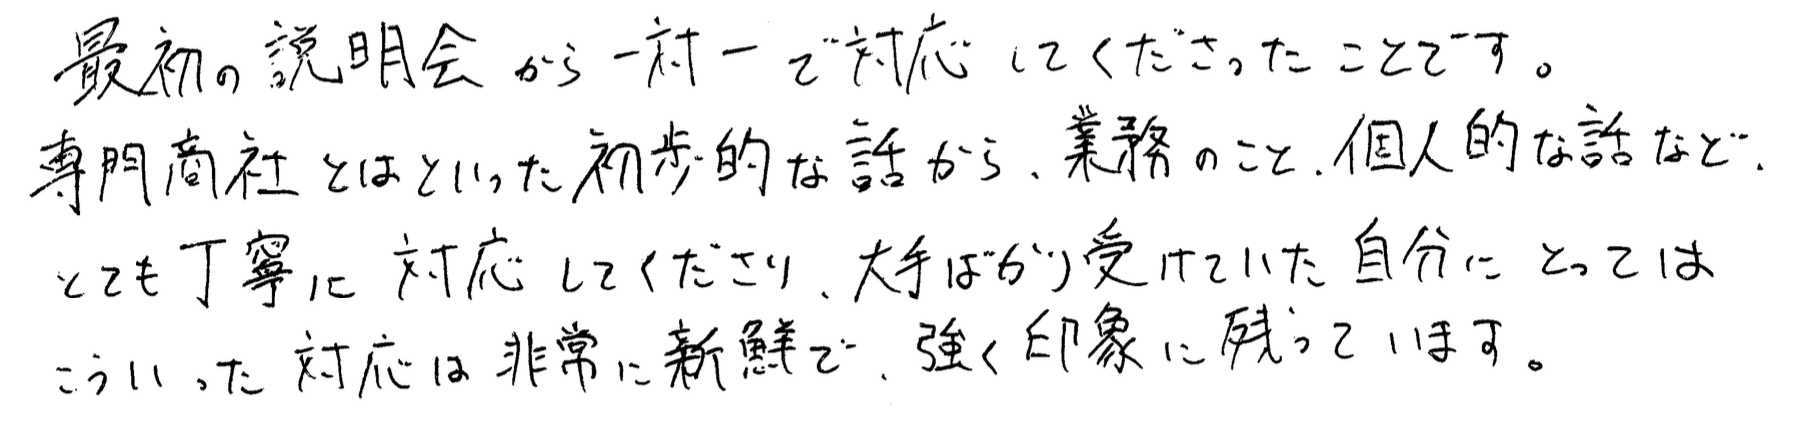 最初の説明会から一対一で対応してくださったことです。
専門商社とはといった初歩的な話から、業務のこと、個人的な話など、
とても丁寧に対応してくださり、大手ばかり受けていた自分にとっては
こういった対応は非常に新鮮で、強く印象に残っています。